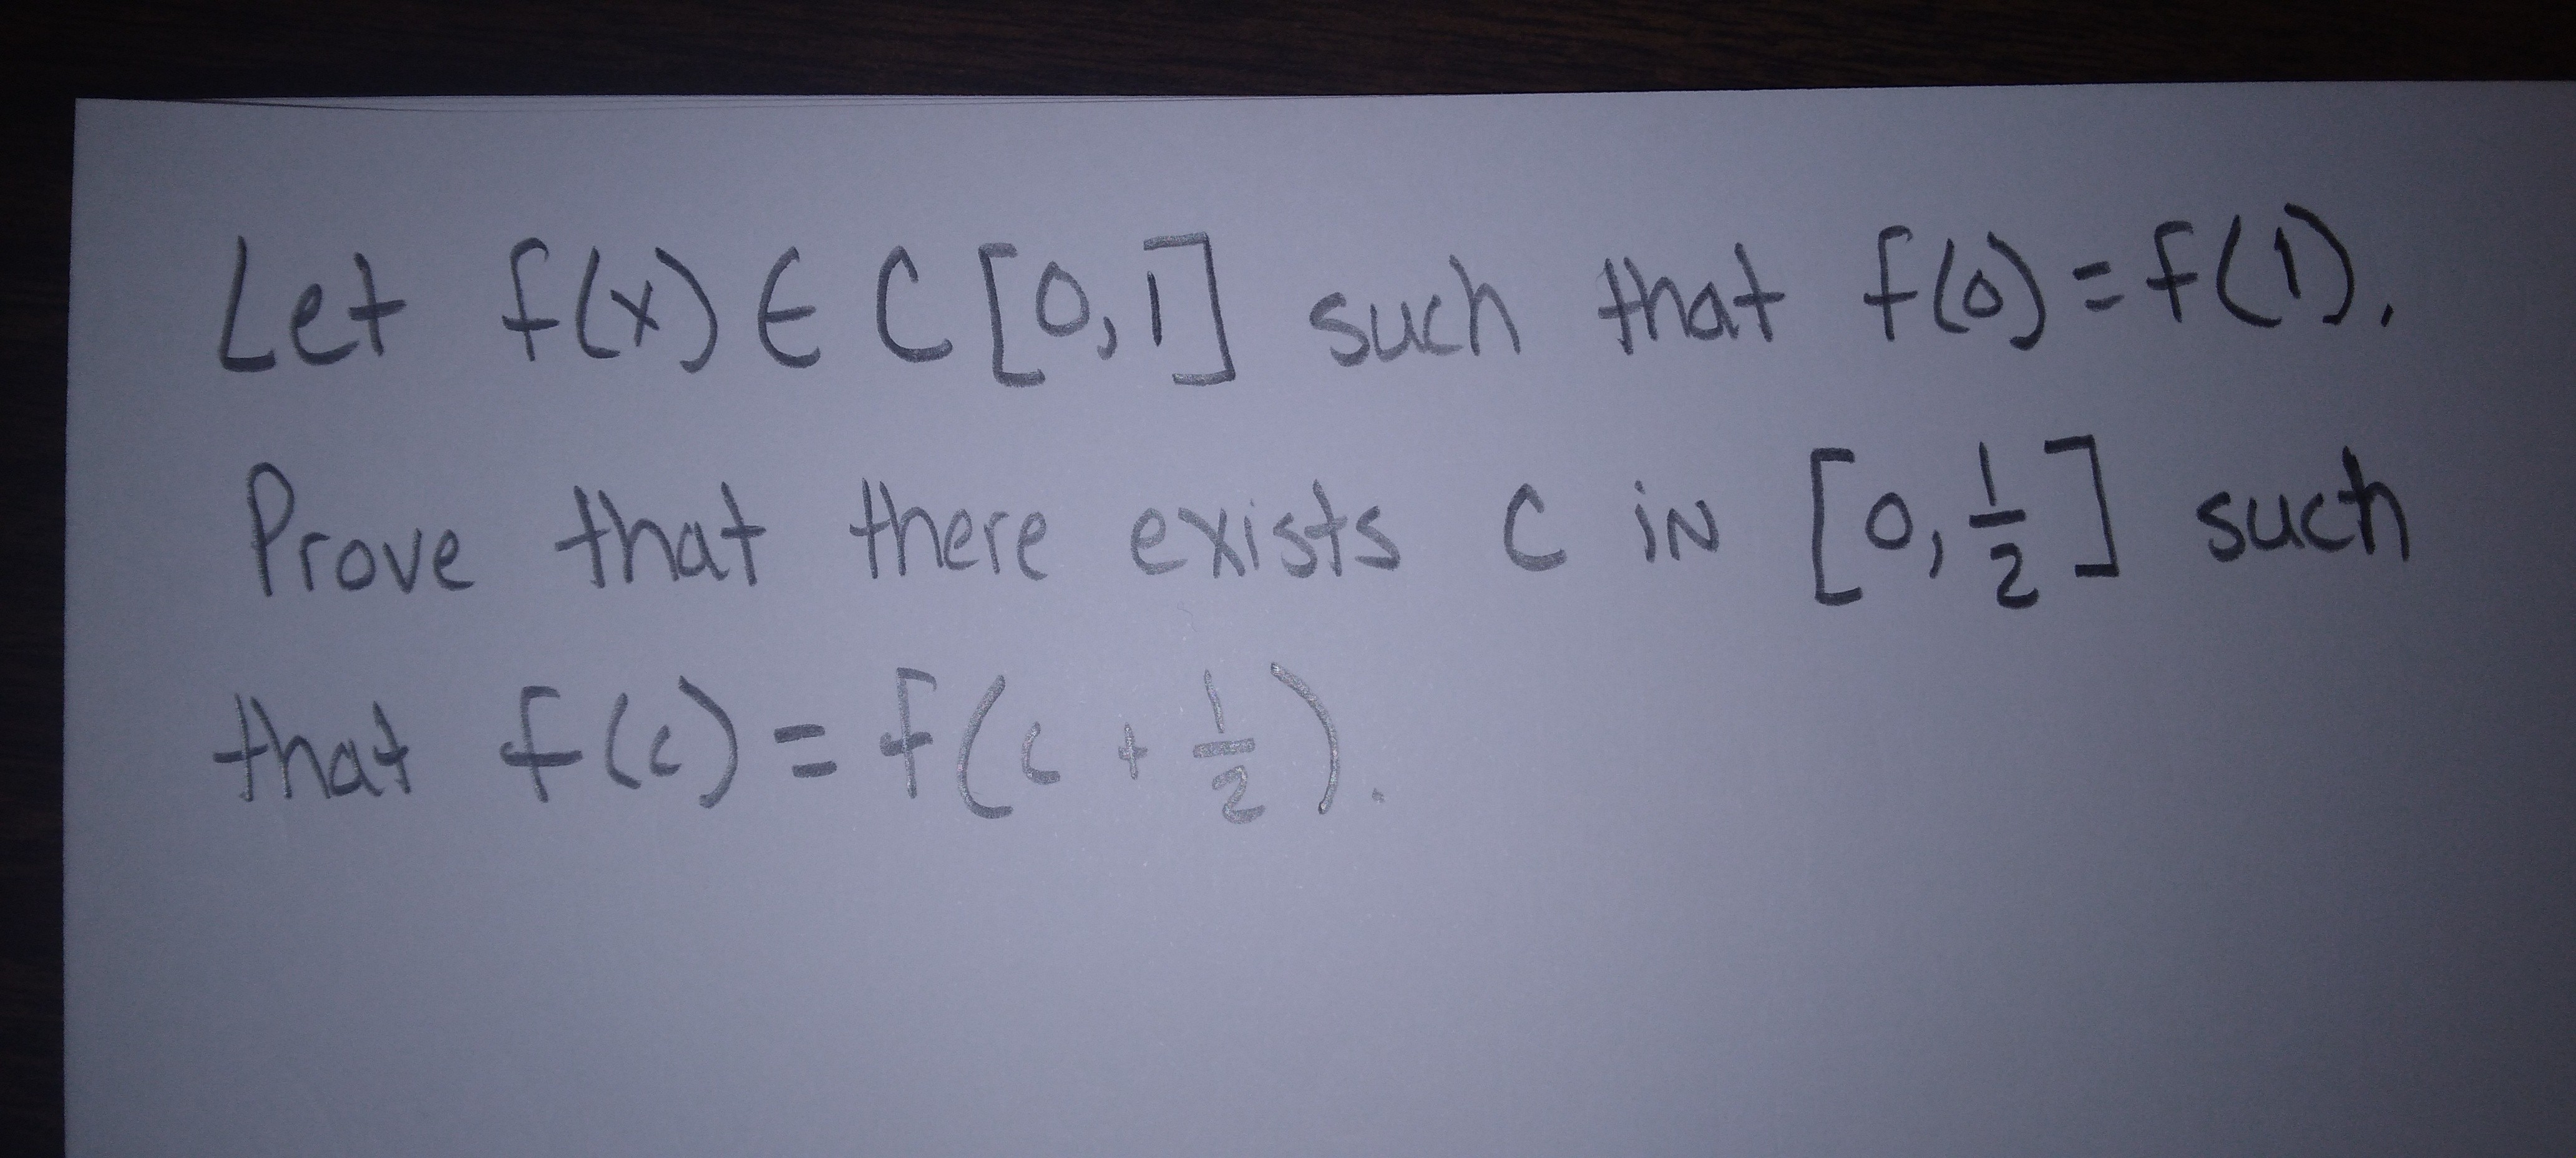 Let f(x) ∈ C[0,1] such that f(0)=f(1).
Prove that there exists c in [0,1/2] such
that f(c)=f(c+1/2).